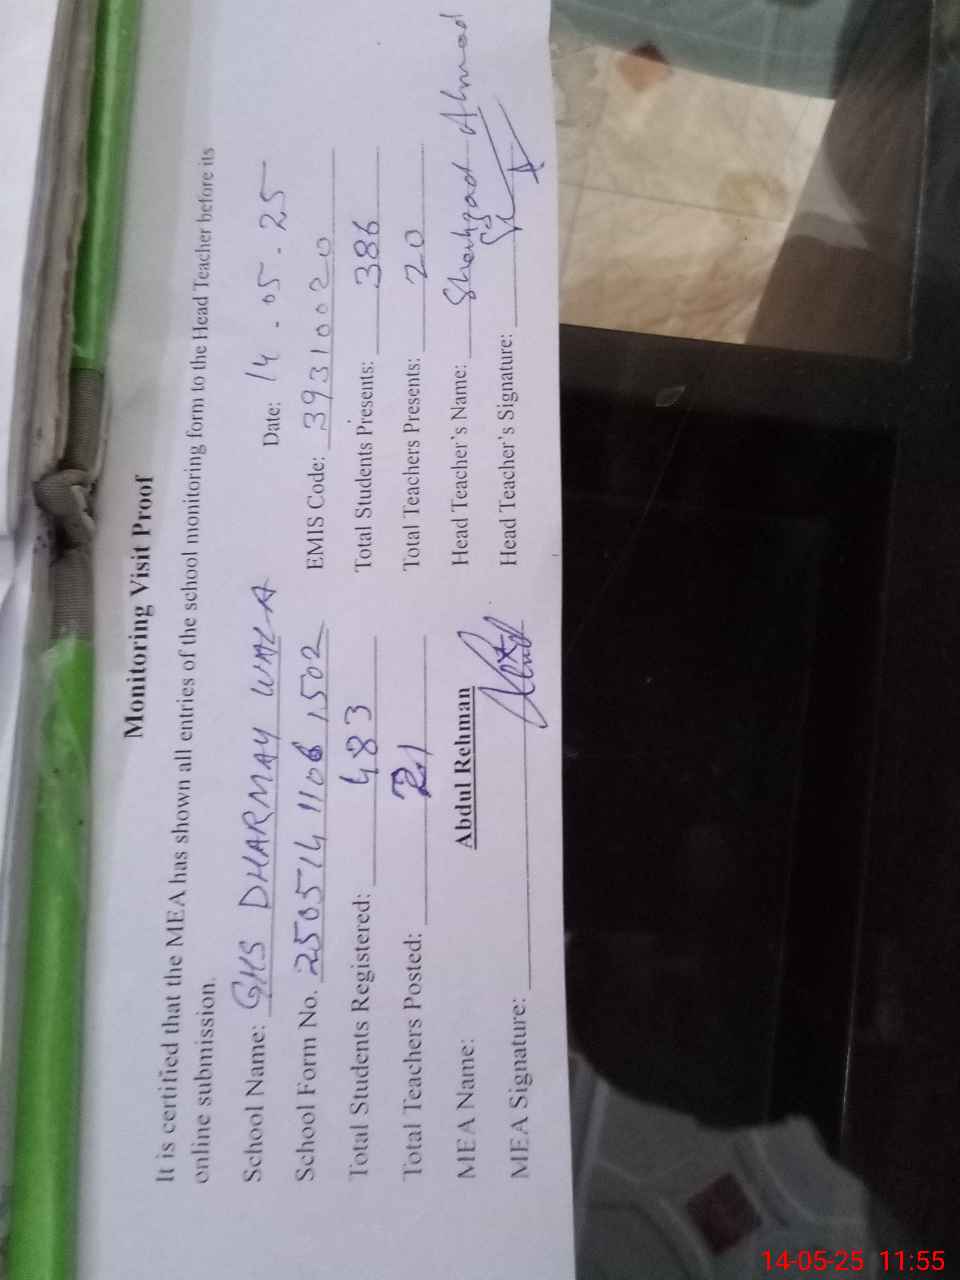 Monitoring Visit Proof
It is certified that the MEA has shown all entries of the school monitoring form to the Head Teacher before its
online submission.
School Name: GHS DHARMAY WALA Date: 14-05-25
School Form No. 250514 1106 1502 EMIS Code: 39310020
Total Students Registered: 483 Total Students Presents: 386
Total Teachers Posted: 21 Total Teachers Presents: 20
MEA Name: Abdul Rehman Head Teacher's Name: Shahzad Ahmad
MEA Signature: Head Teacher's Signature:
14-05-25 11:55